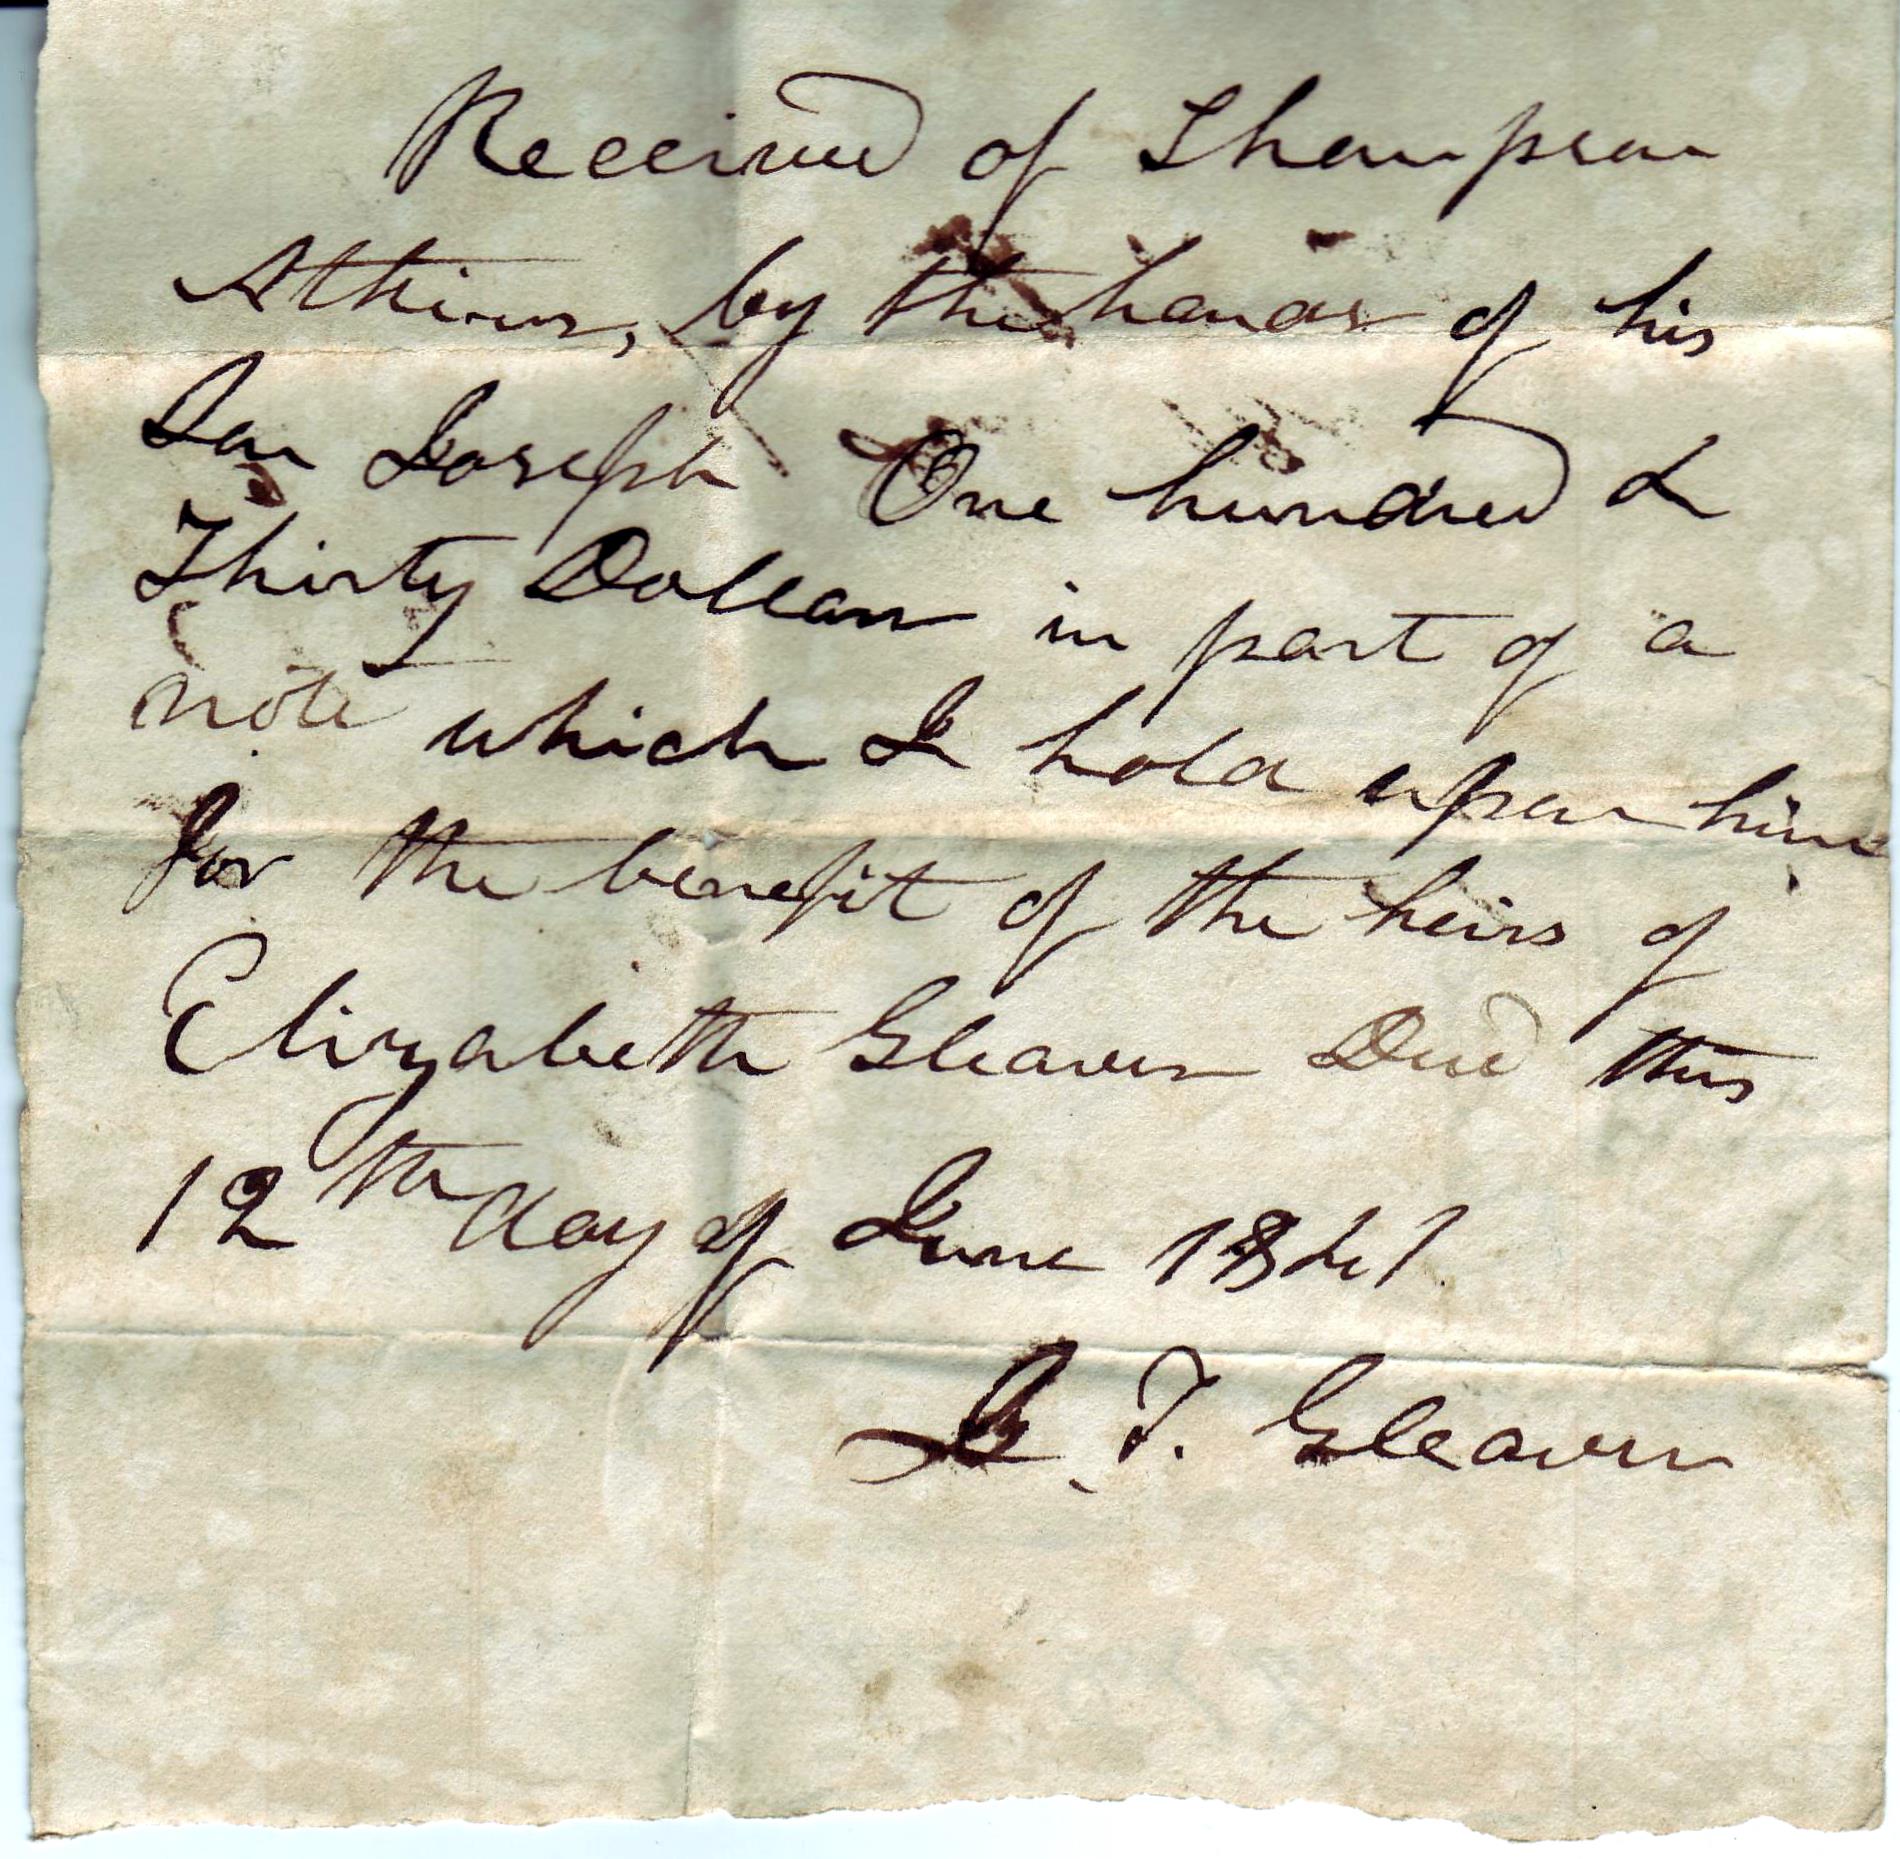 Received of Thompson
Atkins, by the hands of his
Son Joseph One hundred &
Thirty Dollars in part of a
note which I hold upon him
for the benefit of the heirs of
Elizabeth Gleaves Due this
12th day of June 1841
T. Gleaves